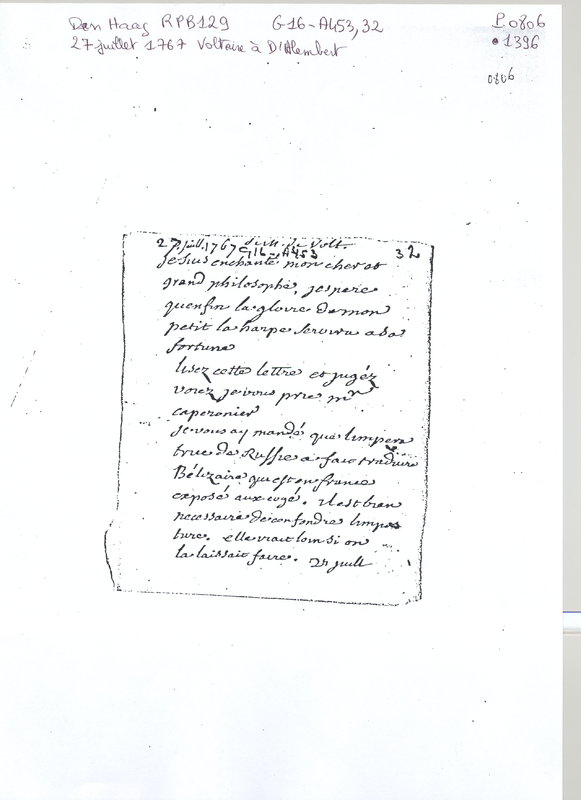 Den Haag RPB129 G16-A453,32 P.0806
27 juillet 1767 Voltaire à D'Alembert •1396
0806
27 juill. 1767 de M. de Volt. 32
G16-A453
je suis enchanté mon cher et
grand philosophe, jespere
quenfin la gloire demon
petit la harpe servira a sa
fortune
lisez cette lettre et jugéz
voiez je vous prie mr
caperonier
je vous ay mandé que limpera
trice de Russie a fait traduire
Bélizaire qui est en france
exposé aux
il est bien
necessaire de confondre limpos
ture. elle irait loin si on
la laissait faire. 27 juill